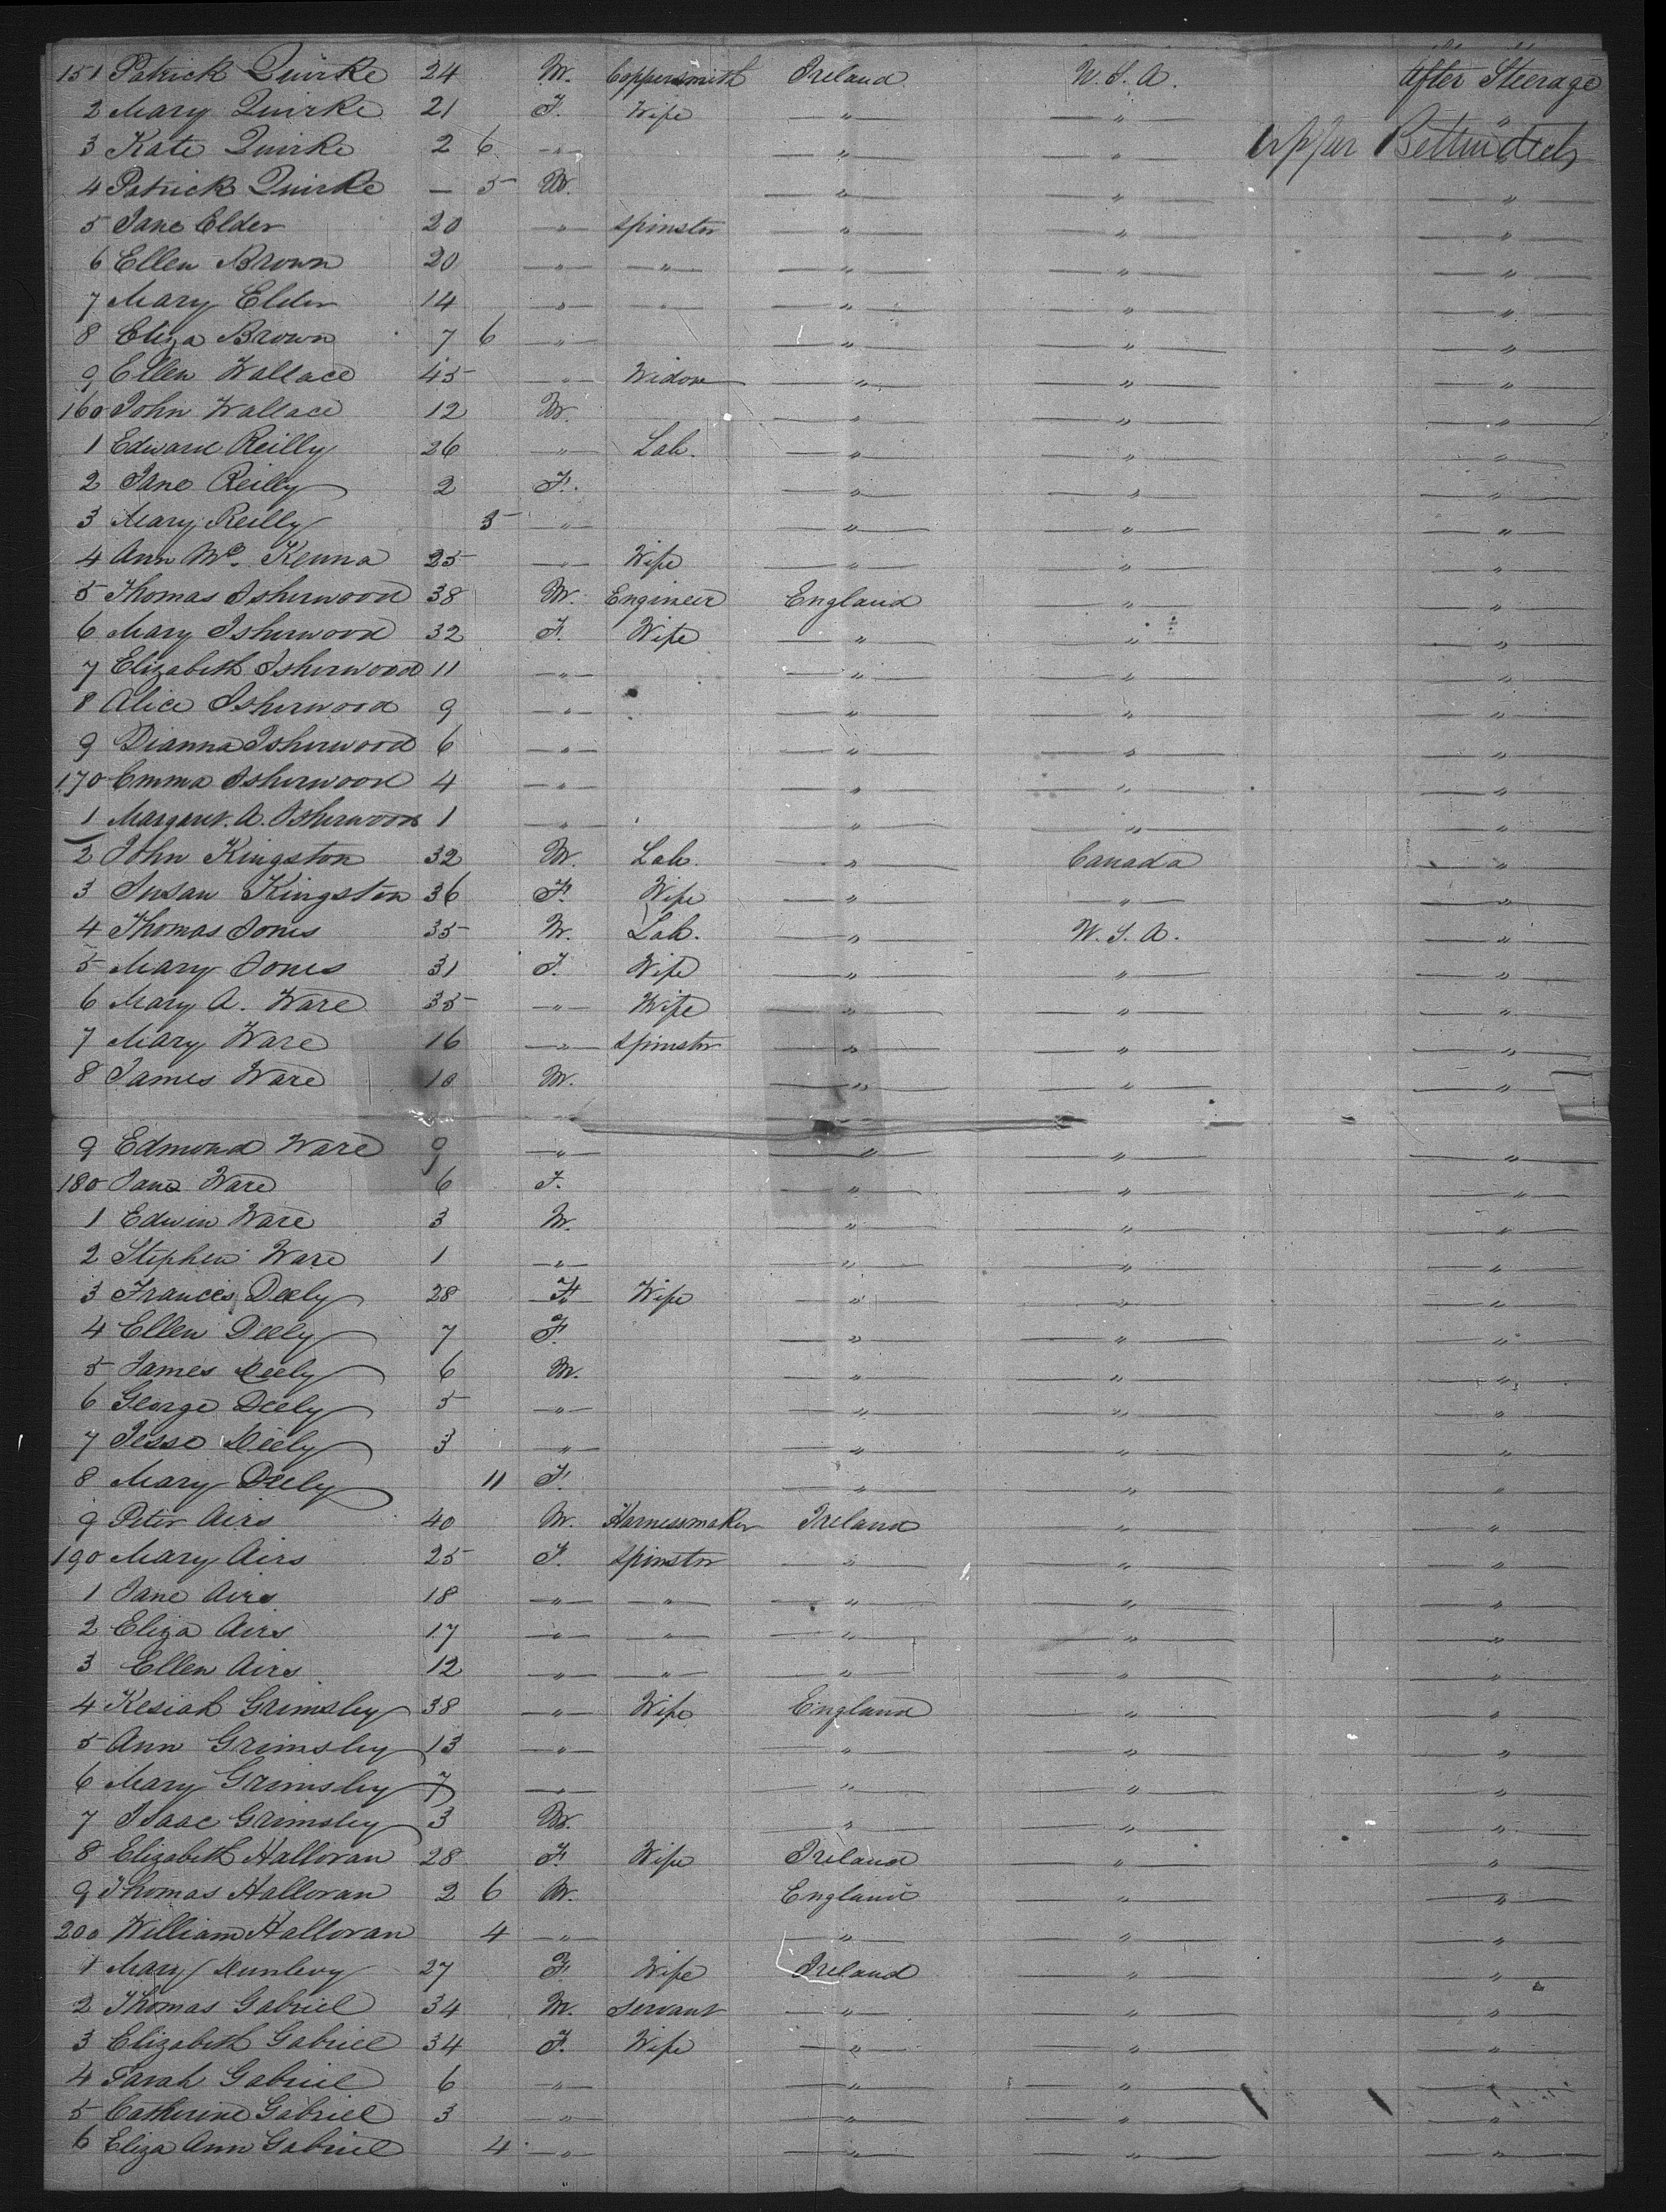 151 Patrick Quirke 24 M. Coppersmith Ireland U.S.A. After Steerage
2 Mary Quirke 21 F. Wife " " "
3 Kate Quirke 2 6 " " " Upper Between decks
4 Patrick Quirke — 5 M. " " "
5 Jane Elder 20 " Spinster " " "
6 Ellen Brown 20 " " " " "
7 Mary Elder 14 " " " " "
8 Eliza Brown 7 6 " " " "
9 Ellen Wallace 45 " Widow " " "
160 John Wallace 12 M. " " "
1 Edward Reilly 26 " Lab. " " "
2 Jane Reilly 2 F. " " "
3 Mary Reilly 3 " " " "
4 Ann Mc. Kenna 25 " Wife " " "
5 Thomas Isherwood 38 M. Engineer England " "
6 Mary Isherwood 32 F. Wife " " "
7 Elizabeth Isherwood 11 " " " "
8 Alice Isherwood 9 " " " "
9 Dianna Isherwood 6 " " " "
170 Emma Isherwood 4 " " " "
1 Margaret. A. Isherwood 1 " " " "
2 John Kingston 32 M. Lab. " Canada "
3 Susan Kingston 36 F. Wife " " "
4 Thomas Jones 35 M. Lab. " U.S.A. "
5 Mary Jones 31 F. Wife " " "
6 Mary A. Ware 35 " Wife " " "
7 Mary Ware 16 " Spinster " " "
8 James Ware 10 M. " " "
9 Edmond Ware 9 " " " "
180 Jane Ware 6 F. " " "
1 Edwin Ware 3 M. " " "
2 Stephen Ware 1 " " " "
3 Frances Deely 28 F. Wife " " "
4 Ellen Deely 7 F. " " "
5 James Deely 6 M. " " "
6 George Deely 5 " " " "
7 Jesse Deely 3 " " " "
8 Mary Deely 11 F. " " "
9 Peter Airs 40 M. Harnessmaker Ireland " "
190 Mary Airs 25 F. Spinster " " "
1 Jane Airs 18 " " " " "
2 Eliza Airs 17 " " " " "
3 Ellen Airs 12 " " " " "
4 Kesiah Grimsley 38 " Wife England " "
5 Ann Grimsley 13 " " " "
6 Mary Grimsley 7 " " " "
7 Isaac Grimsley 3 M. " " "
8 Elizabeth Halloran 28 F. Wife Ireland " "
9 Thomas Halloran 2 6 M. England " "
200 William Halloran 4 " " " "
1 Mary Dunlevy 27 F. Wife Ireland " "
2 Thomas Gabriel 34 M. Servant " " "
3 Elizabeth Gabriel 34 F. Wife " " "
4 Sarah Gabriel 6 " " " "
5 Catherine Gabriel 3 " " " "
6 Eliza Ann Gabriel 4 " " " "